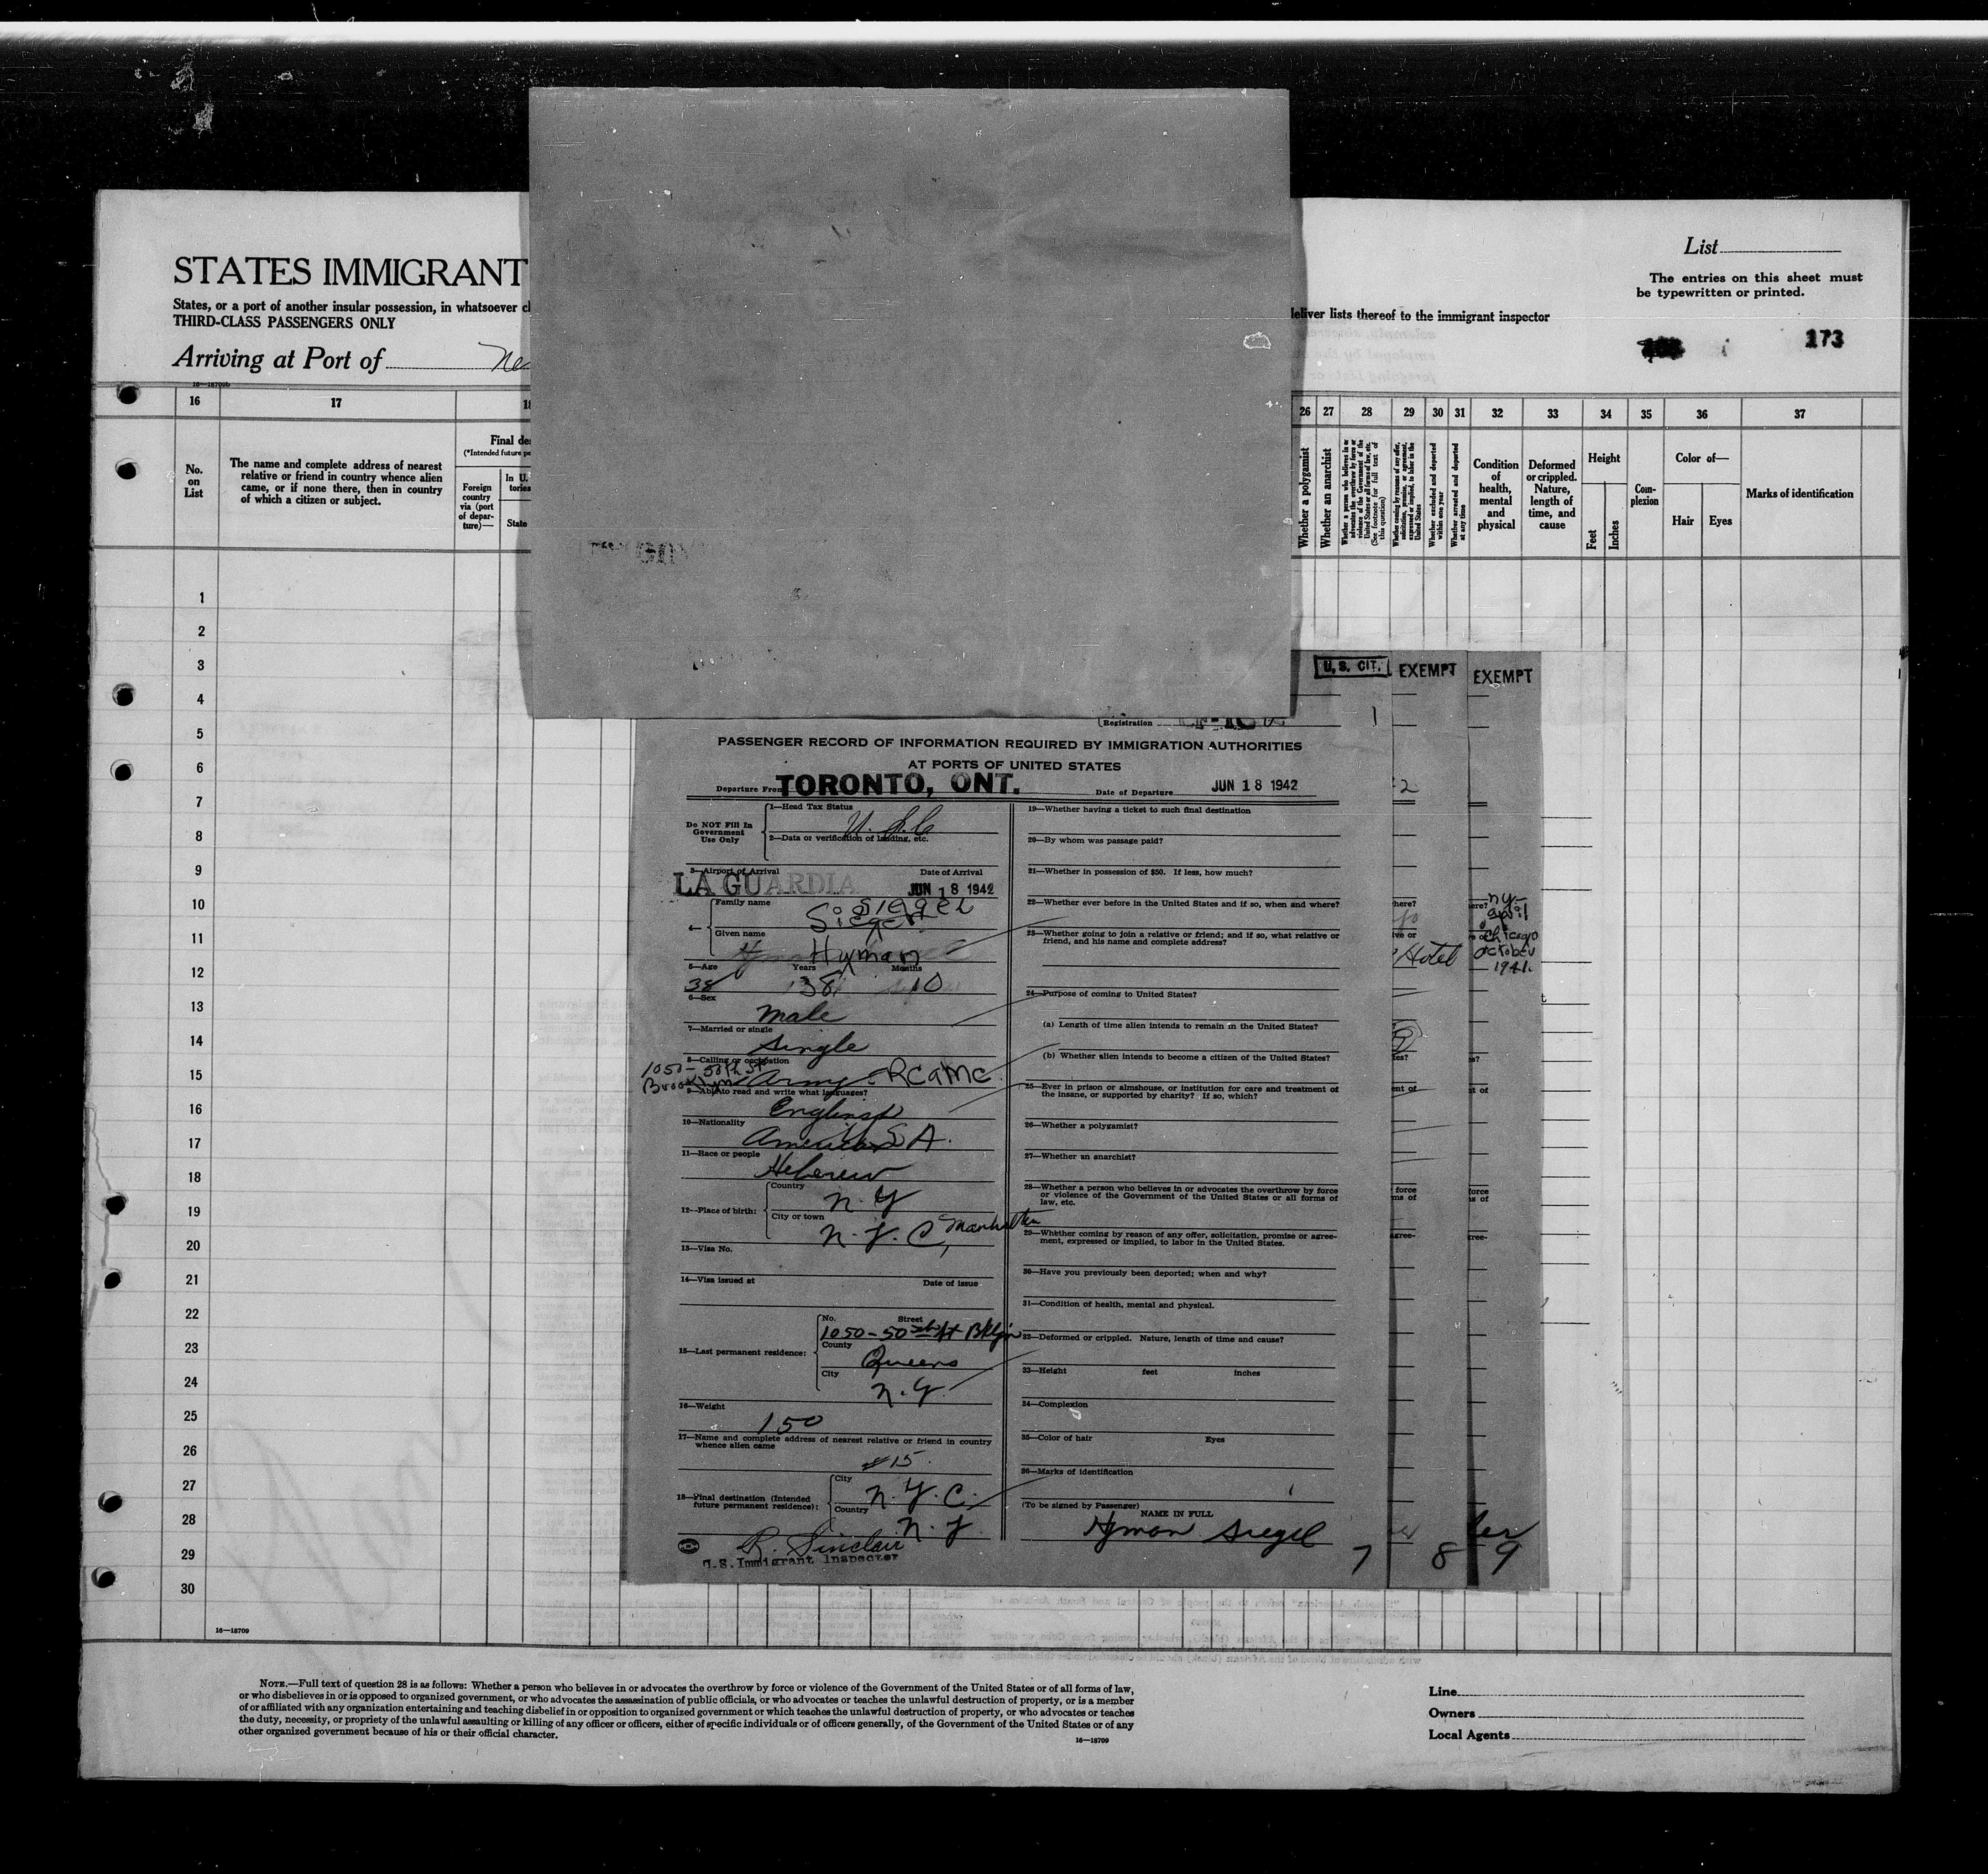 List
The entries on this sheet must
be typewritten or printed.
STATES IMMIGRANT
States, or a port of another insular possession, in whatsoever
deliver lists thereof to the immigrant inspector
THIRD-CLASS PASSENGERS ONLY
173
Arriving at Port of
16—18709b
16 17 26 27 28 29 30 31 32 33 34 35 36 37
No.
on
List
The name and complete address of nearest
relative or friend in country whence alien
came, or if none there, then in country
of which a citizen or subject.
Final
(*Intended future
Foreign
country
via (port
of depar-
ture)—
In U.
State
Whether a polygamist
Whether an anarchist
Whether a person who believes in or
advocates the overthrow by force or
violence of the Government of the
United States or all forms of law, etc.
(See footnote for full text of
this question)
Whether coming by reasons of any offer,
solicitation, promise, or agreement,
expressed or implied, to labor in the
United States
Whether excluded and deported
within one year
Whether arrested and deported
at any time
Condition
of
health,
mental
and
physical
Deformed
or crippled.
Nature,
length of
time, and
cause
Height
Feet
Inches
Com-
plexion
Color of—
Hair Eyes
Marks of identification
1
2
3
4
5
6
7
8
9
10
11
12
13
14
15
16
17
18
19
20
21
22
23
24
25
26
27
28
29
30
16—18709
U.S. CIT. EXEMPT EXEMPT
Registration
PASSENGER RECORD OF INFORMATION REQUIRED BY IMMIGRATION AUTHORITIES
AT PORTS OF UNITED STATES
Departure From TORONTO, ONT. Date of Departure JUN 18 1942
Do NOT Fill In
Government
Use Only
1—Head Tax Status
U.S.C
2—Data or verification of landing, etc.
3—Airport of Arrival Date of Arrival
LA GUARDIA JUN 18 1942
4— Family name
SIEGEL
Siegel
Given name
Hyman
5—Age Years Months
38 38 10
6—Sex
Male
7—Married or single
Single
8—Calling or occupation
1050-50th St
Brooklyn Army - RCAMC
9—Able to read and write what languages?
English
10—Nationality
American U S A.
11—Race or people
Hebrew
12—Place of birth:
Country
N.Y
City or town
N.Y.C, Manhattan
13—Visa No.
14—Visa issued at Date of issue
15—Last permanent residence:
No. Street
1050-50th St Bklyn
County
Queens
City
N.Y.
16—Weight
150
17—Name and complete address of nearest relative or friend in country
whence alien came
#15.
18—Final destination (Intended
future permanent residence):
City
N.Y.C.
Country
N.Y.
R. Sinclair
U.S. Immigrant Inspector
19—Whether having a ticket to such final destination
20—By whom was passage paid?
21—Whether in possession of $50. If less, how much?
22—Whether ever before in the United States and if so, when and where?
23—Whether going to join a relative or friend; and if so, what relative or
friend, and his name and complete address?
24—Purpose of coming to United States?
(a) Length of time alien intends to remain in the United States?
(b) Whether alien intends to become a citizen of the United States?
25—Ever in prison or almshouse, or institution for care and treatment of
the insane, or supported by charity? If so, which?
26—Whether a polygamist?
27—Whether an anarchist?
28—Whether a person who believes in or advocates the overthrow by force
or violence of the Government of the United States or all forms of
law, etc.
29—Whether coming by reason of any offer, solicitation, promise or agree-
ment, expressed or implied, to labor in the United States.
30—Have you previously been deported; when and why?
31—Condition of health, mental and physical.
32—Deformed or crippled. Nature, length of time and cause?
33—Height feet inches
34—Complexion
35—Color of hair Eyes
36—Marks of identification
(To be signed by Passenger)
NAME IN FULL
Hyman Siegel
7 8 9
Hotel
N.Y.-
April
Chicago
October
1941.
NOTE.—Full text of question 28 is as follows: Whether a person who believes in or advocates the overthrow by force or violence of the Government of the United States or of all forms of law,
or who disbelieves in or is opposed to organized government, or who advocates the assassination of public officials, or who advocates or teaches the unlawful destruction of property, or is a member
of or affiliated with any organization entertaining and teaching disbelief in or opposition to organized government or which teaches the unlawful destruction of property, or who advocates or teaches
the duty, necessity, or propriety of the unlawful assaulting or killing of any officer or officers, either of specific individuals or of officers generally, of the Government of the United States or of any
other organized government because of his or their official character.
16—18709
Line
Owners
Local Agents